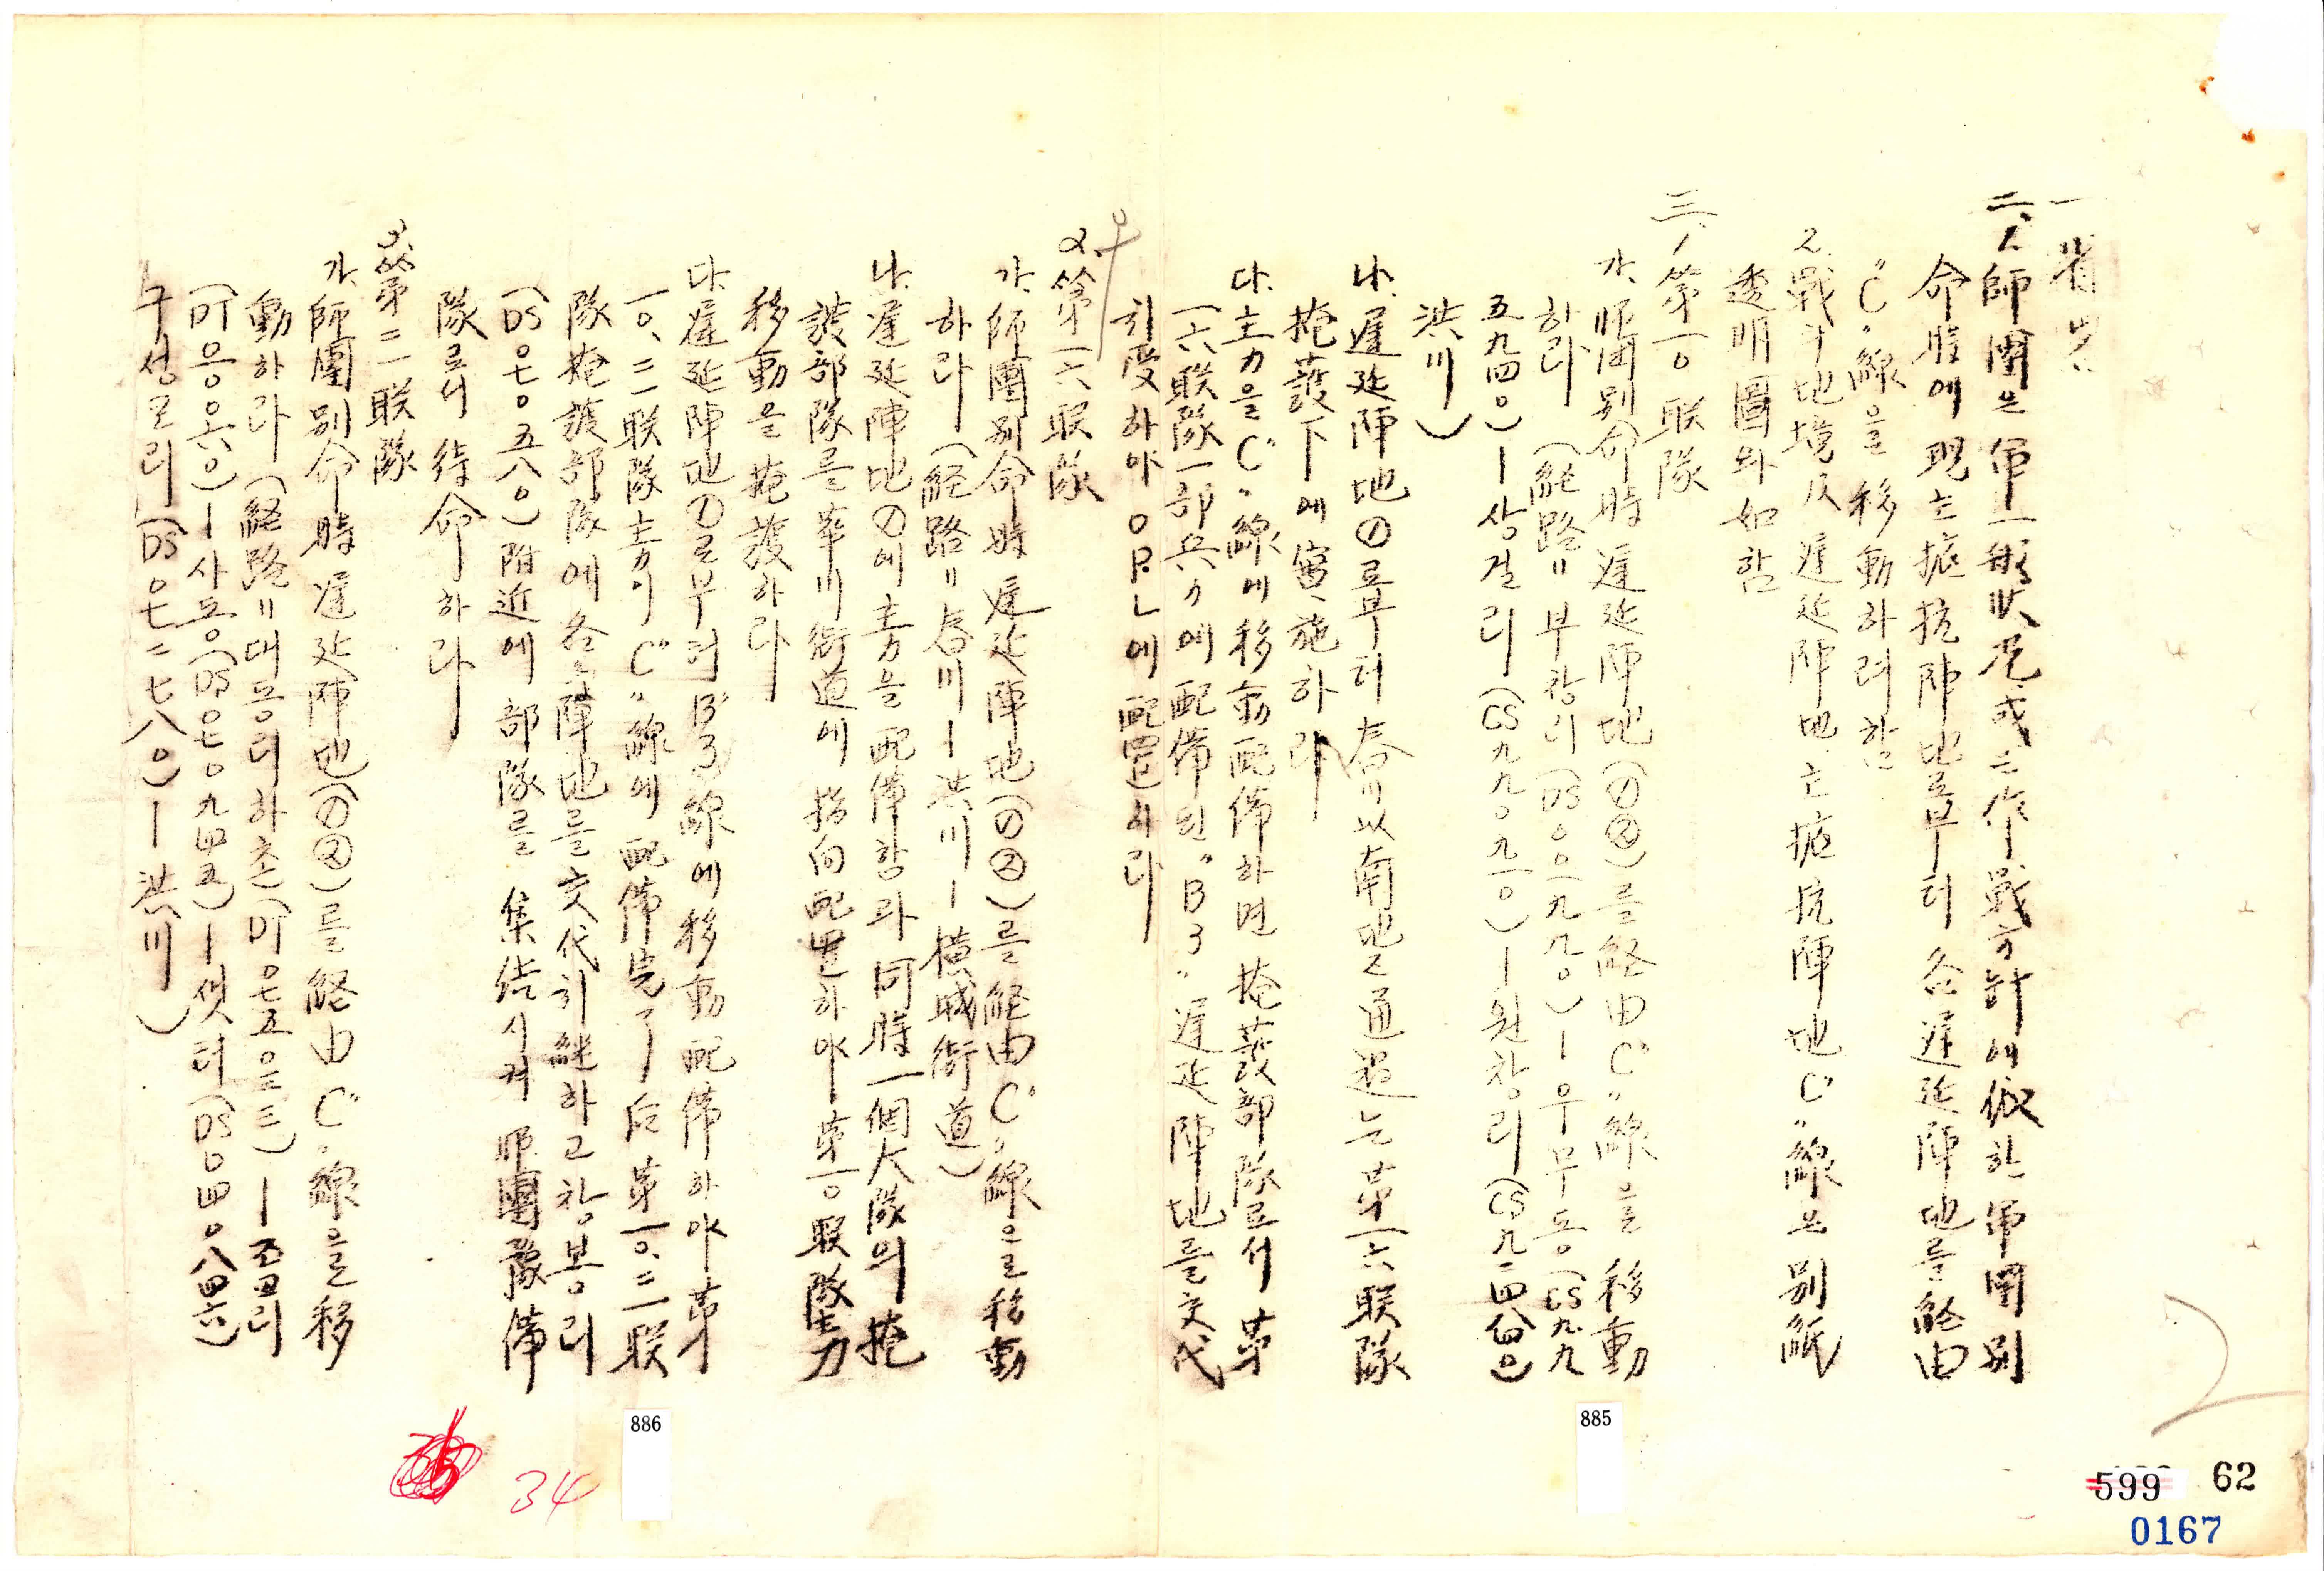 一 省畧
二、1. 師團은 第一般狀況 或는 作戰方計에 依한 師團別
命時에 現主抵抗陣地로부터 各 遲延陣地를 経由
"C"線을 移動하려 함
2. 戰斗地境 及 遲延陣地 主抵抗陣地 "C"線은 別紙
透明圖와 如함
三、1. 第一0联隊
가. 師團別命時 遲延陣地(①②)를 経由 "C"線을 移動
하라 (経路=부창리(DS00一九九0)ㅣ우무동(CS九九
五九四0)ㅣ상걸리(CS九九0九一0)ㅣ원창리(CS九二四八四0)
洪川)
나. 遲延陣地①로부터 春川以南地区通過는 第一六联隊
掩護下에 實施하라
다. 主力을 "C"線에 移動配備하면 掩護部隊로서 第
一六联隊 一部兵力에 配備된 "B3" 遲延陣地를 交代
引受하야 O.P.L에 配置하라
우
2. 第一六联隊
가. 師團別命時 遲延陣地(①②)를 経由 "C"線으로 移動
하라 (経路=春川ㅣ洪川ㅣ橫城街道)
나. 遲延陣地①에 主力을 配備함과 同時 一個大隊의 掩
護部隊를 華川街道에 指向配置하야 第一0联隊主力
移動을 掩護하라
다. 遲延陣地①로부터 "B3"線에 移動配備하야 第
一0、二一联隊主力이 "C"線에 配備完了后 第一0、二一联
隊掩護部隊에 各々陣地를 交代引継하고 창봉리
(DS0七0五八0)附近에 部隊를 集結시켜 師團豫備
隊로서 待命하라
3. 第二一联隊
가. 師團別命時 遲延陣地(①②)를 経由 "C"線을 移
動하라 (経路=대동리하촌(DT0七五0三)ㅣ조교리
(DT0八00六0)ㅣ사동(DS0七0九四五)ㅣ잇터(DS0四0八四六)
구성포리(DS0七二七八0)ㅣ洪川)
885
886
34
599
62
0167
2